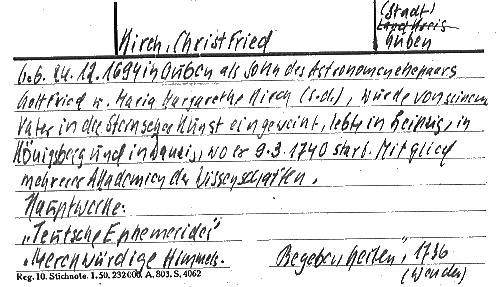 (Stadt)
Kirch, Christfried Landkreis
Guben
Geb. 24.12.1694 in Guben als Sohn des Astronomenehepaars
Gottfried u. Maria Margarethe Kirch (s.d.), wurde von seinem
Vater in die Sternseher Kunst eingeweiht, lebte in Leipzig, in
Königsberg und in Danzig, wo er 9.3.1740 starb. Mitglied
mehrerer Akademien der Wissenschaften.
Hauptwerke:
"Teutsche Ephemerides"
"Merckwürdige Himmels- Begebenheiten", 1736
(Wenden)
Reg. 10. Stichnote. 1. 50. 232000. A. 803. S. 4062